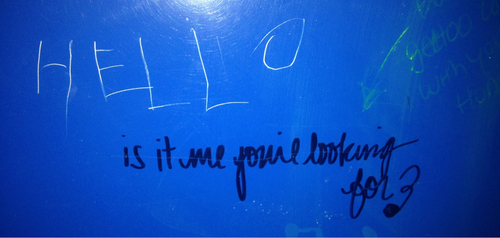 HELLO
is it me you're looking
for?
with yo